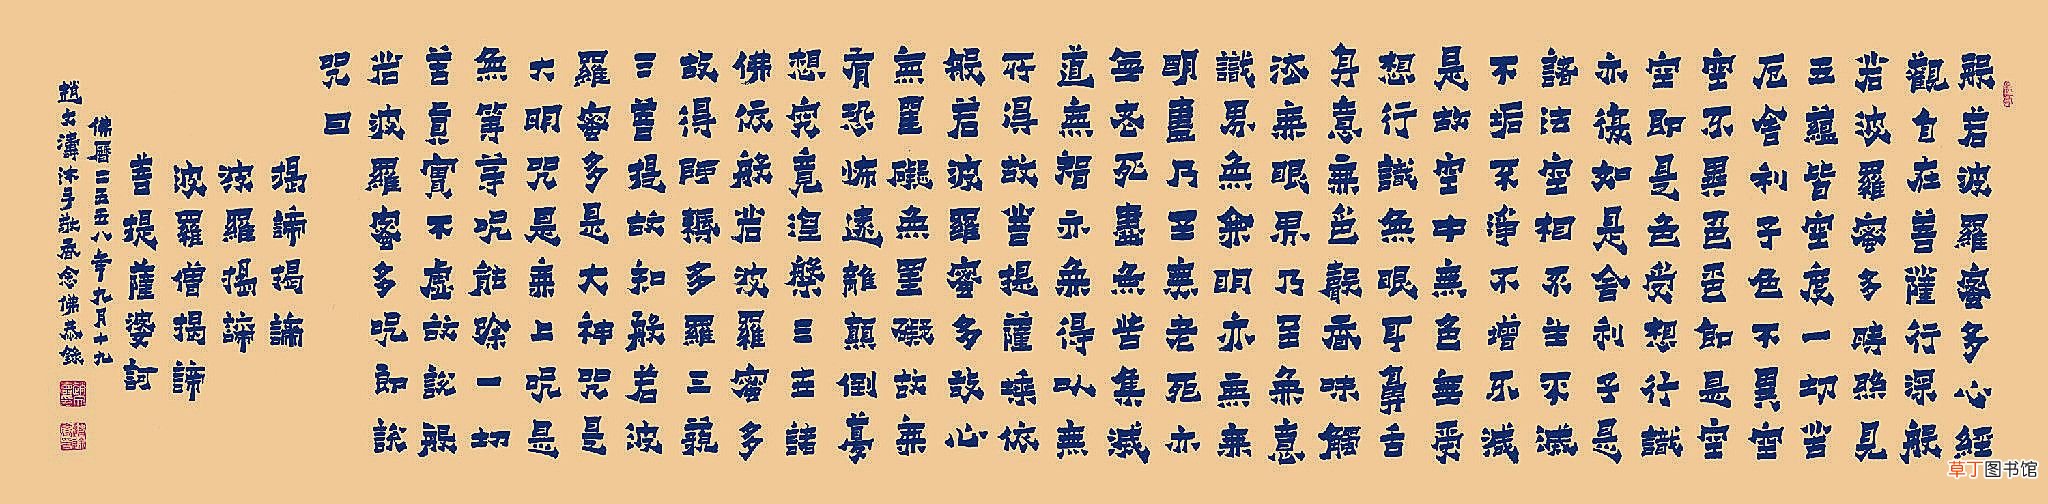 般若波羅蜜多心經
觀自在菩薩行深般
若波羅蜜多時照見
五蘊皆空度一切苦
厄舍利子色不異空
空不異色色即是空
空即是色受想行識
亦復如是舍利子是
諸法空相不生不滅
不垢不淨不增不減
是故空中無色無受
想行識無眼耳鼻舌
身意無色聲香味觸
法無眼界乃至無意
識界無無明亦無無
明盡乃至無老死亦
無老死盡無苦集滅
道無智亦無得以無
所得故菩提薩埵依
般若波羅蜜多故心
無罣礙無罣礙故無
有恐怖遠離顛倒夢
想究竟涅槃三世諸
佛依般若波羅蜜多
故得阿耨多羅三藐
三菩提故知般若波
羅蜜多是大神咒是
大明咒是無上咒是
無等等咒能除一切
苦真實不虛故說般
若波羅蜜多咒即說
咒曰
揭諦揭諦
波羅揭諦
波羅僧揭諦
菩提薩婆訶
佛曆二五五八年九月十九
趙文濤沐手敬香念佛恭錄
草丁图书馆